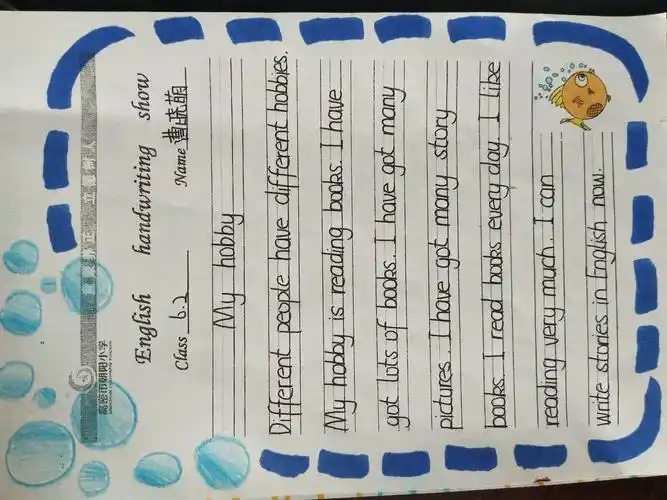 高密市朝阳小学
English handwriting show
Class 6.2 Name 曹蕊萌
My hobby
Different people have different hobbies.
My hobby is reading books. I have
got lots of books. I have got many
pictures. I have got many story
books. I read books every day. I like
reading very much. I can
write stories in English now.